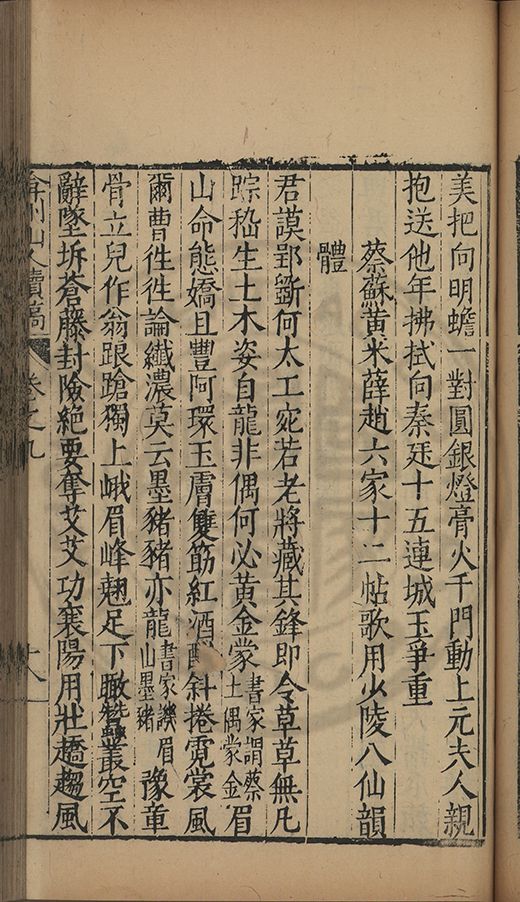 美把向明蟾一對圓銀燈膏火千門動上元夫人親
抱送他年拂拭向秦廷十五連城玉爭重
蔡蘇黃米薛趙六家十二帖歌用少陵八仙韻
體
君謨郢斵何太工宛若老將藏其鋒即令草草無凡
踪嵇生土木姿自龍非偶何必黃金蒙書家謂蔡土偶蒙金眉
山命態嬌且豐阿環玉膚雙筯紅酒酣斜捲霓裳風
爾曹徃徃論纖濃莫云墨豬豬亦龍書家譏眉山墨豬豫章
骨立兒作翁踉蹌獨上峨眉峰翹足下瞰蠶叢空不
辭墜坼蒼藤封險絶要奪艾艾功襄陽用壯趫趨風
弇州山人續稿 卷之九 十八